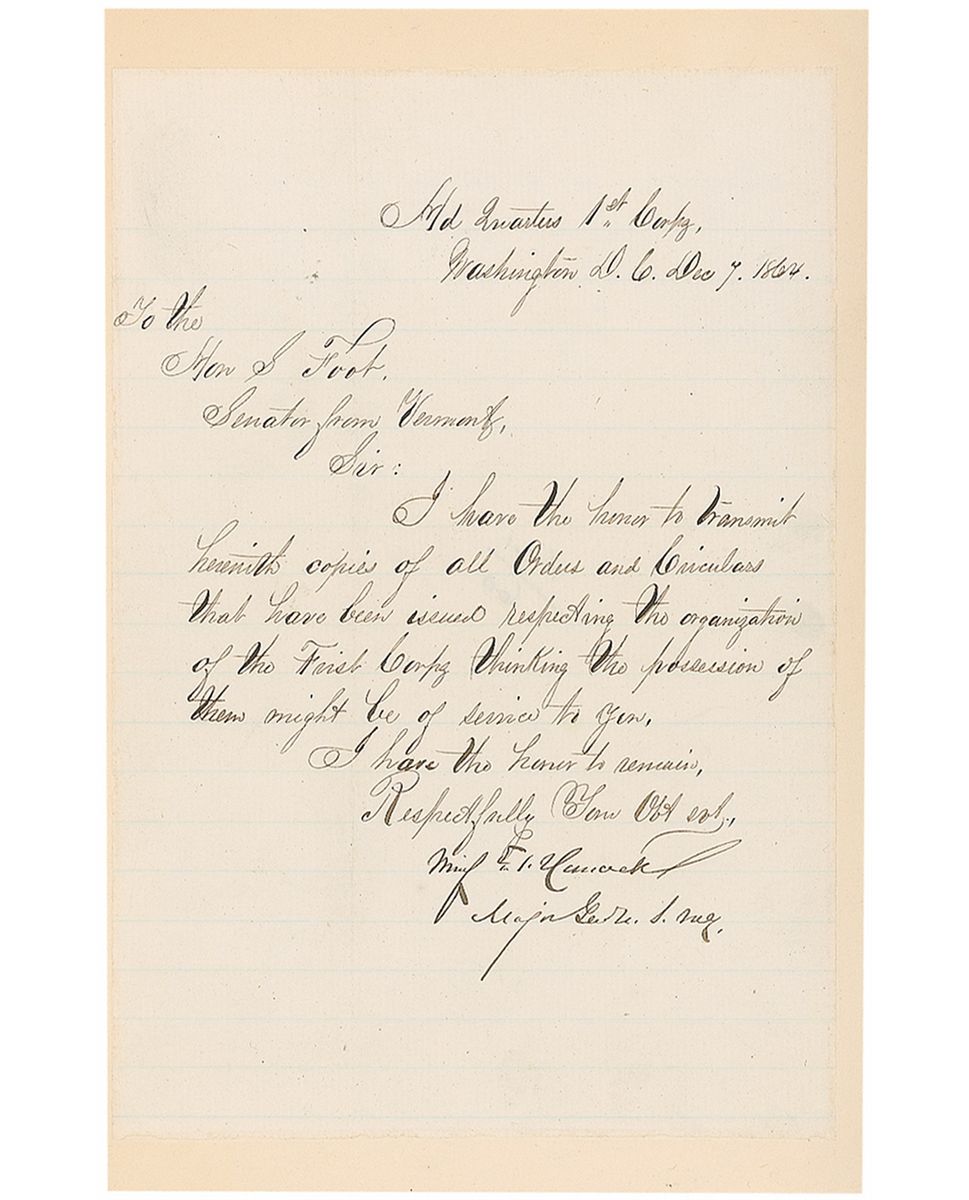 Hd Quarters 1st Corps,
Washington D. C. Dec 7. 1864.
To the
Hon S Foot,
Senator from Vermont,
Sir:
I have the honor to transmit
herewith copies of all Orders and Circulars
that have been issued respecting the organization
of the First Corps thinking the possession of
them might be of service to you.
I have the honor to remain,
Respectfully Your Obt svt.,
Winf'd S. Hancock
Major Genl U. S. Vols.